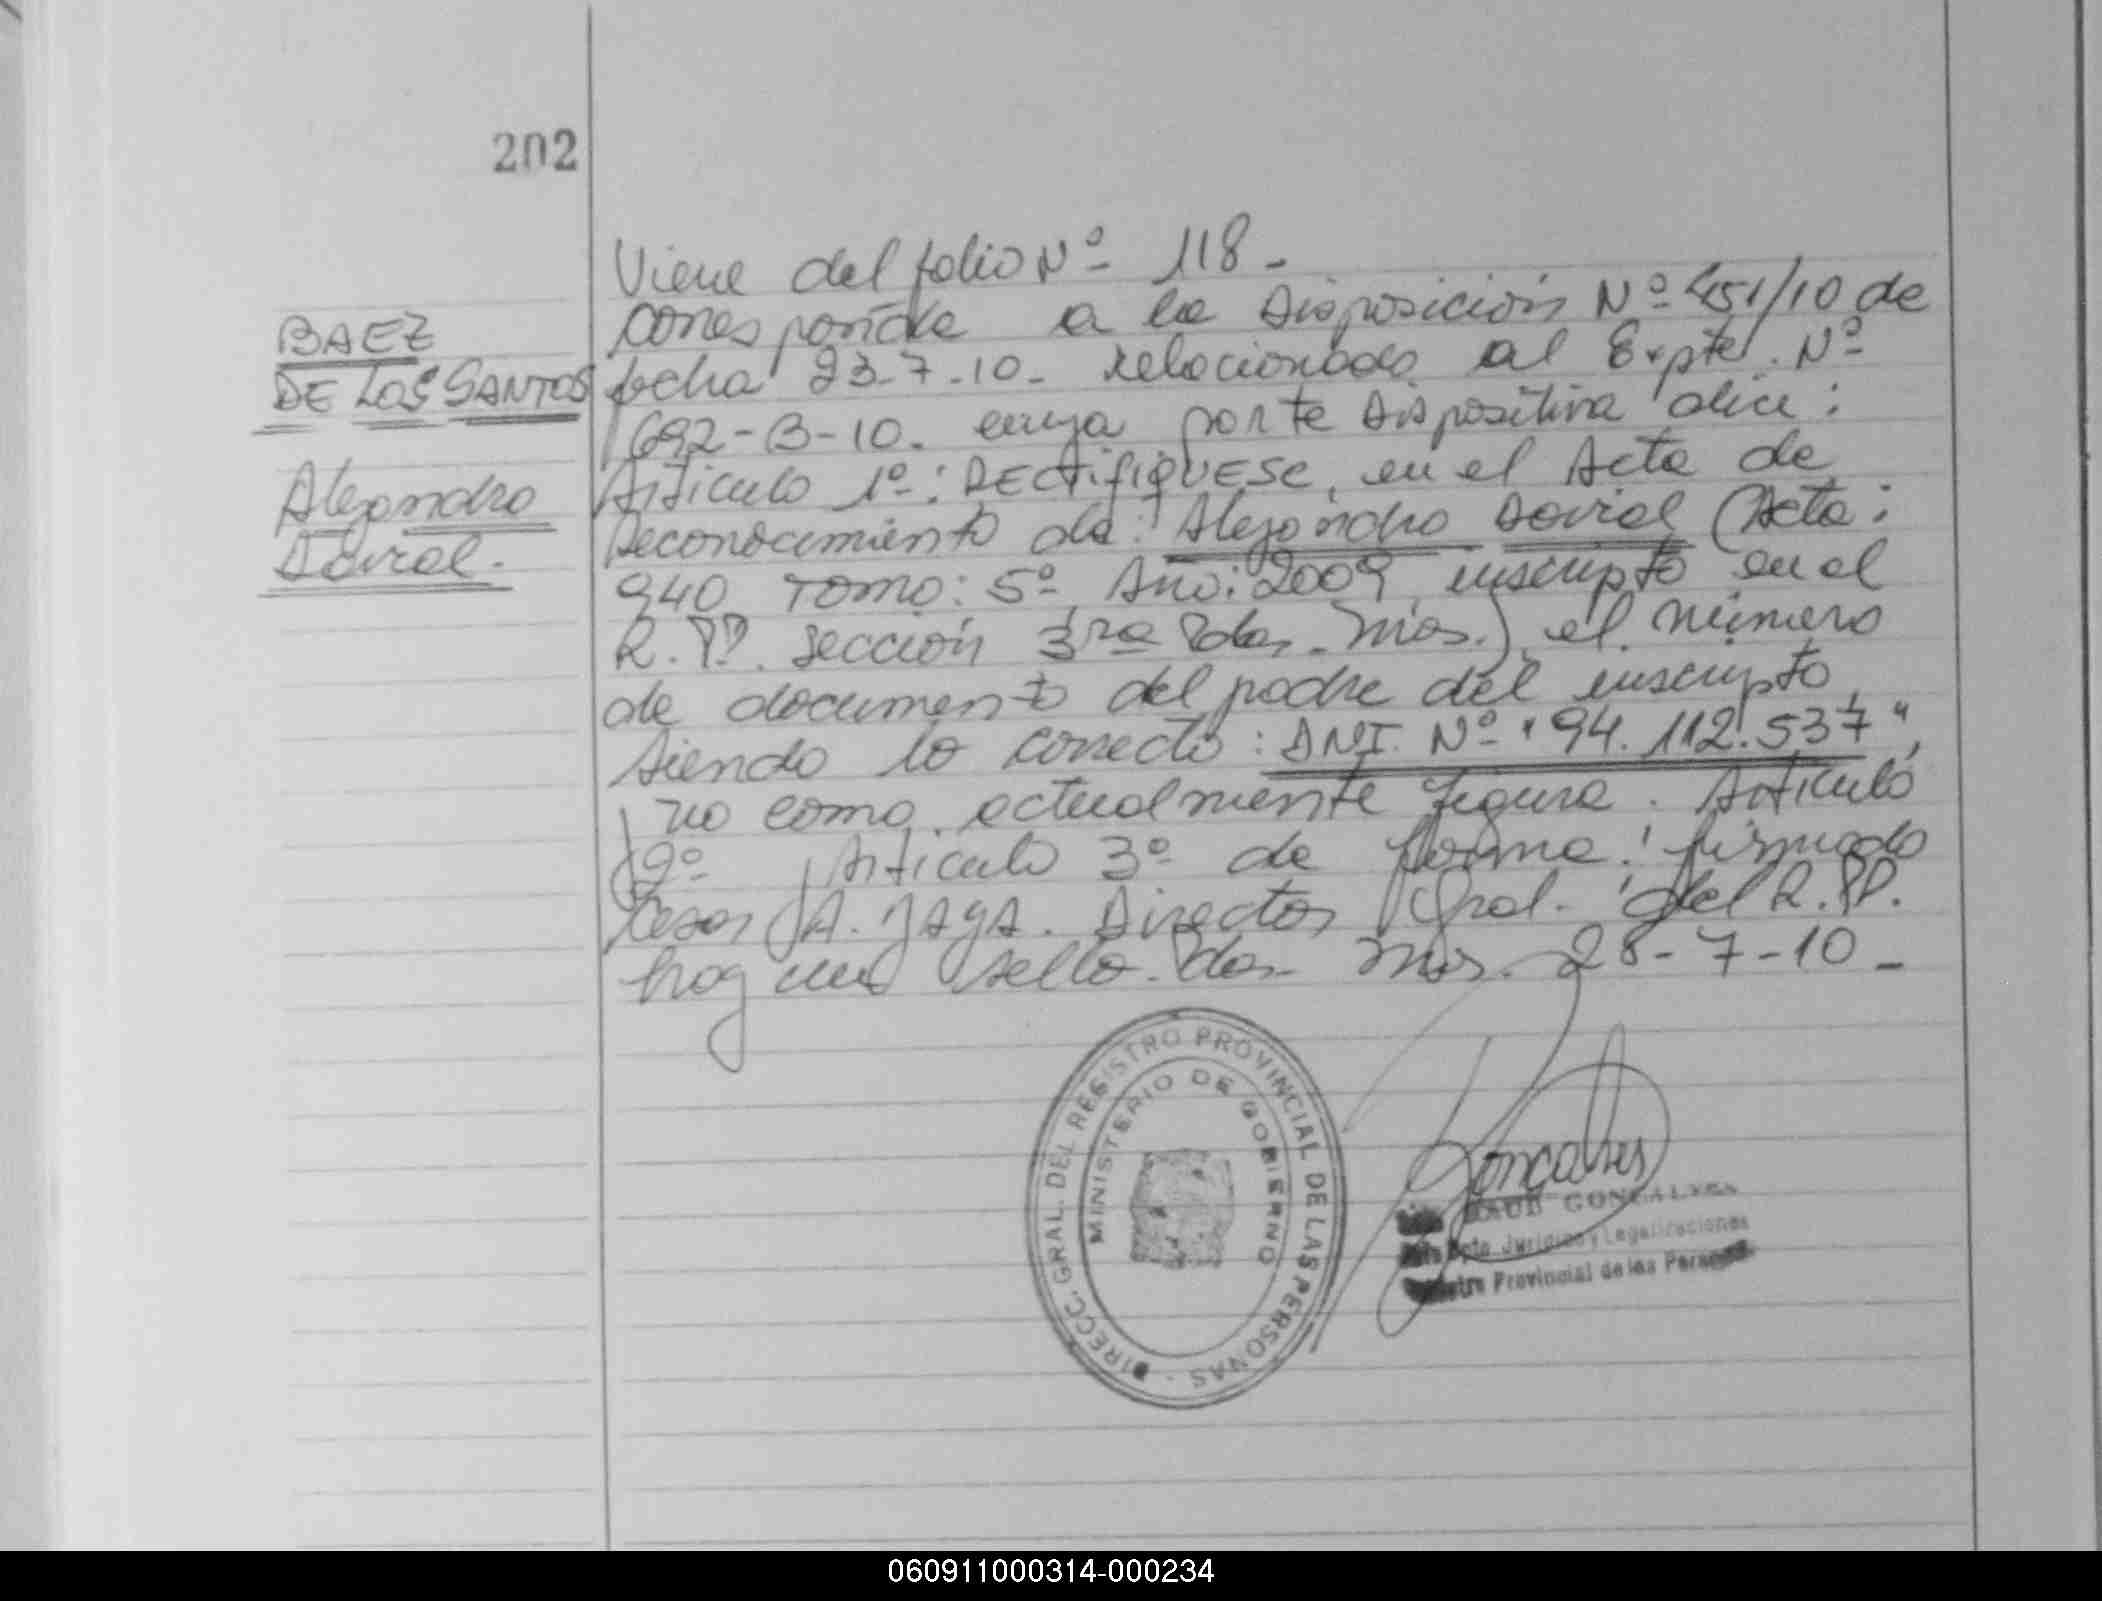 202
Viene del folio Nº 118.-
BAEZ
DE LOS SANTOS
Alejandro
David.
corresponde a la Disposición Nº 451/10 de
fecha 23-7-10- relacionado al Expte. Nº
692-B-10. cuya parte dispositiva dice:
Artículo 1º: RECTIFIQUESE, en el Acta de
Reconocimiento de: Alejandro David (Acta:
940 Tomo: 5º Año: 2009, inscripto en el
R.PP. sección 3ra Pdas. Mnes.), el número
de documento del padre del inscripto,
siendo lo correcto: DNI. Nº "94.112.537",
y no como actualmente figura. Artículo
2º y Artículo 3º de forma. firmado
Cesar A. Director Gral. del R.PP.
hay un sello- Pdas- Mnes. 28-7-10-
DIRECC. GRAL. DEL REGISTRO PROVINCIAL DE LAS PERSONAS
MINISTERIO DE GOBIERNO
Goncalves
RAUL GONCALVES
Dpto Jurídico y Legalizaciones
Provincial de las Personas
060911000314-000234